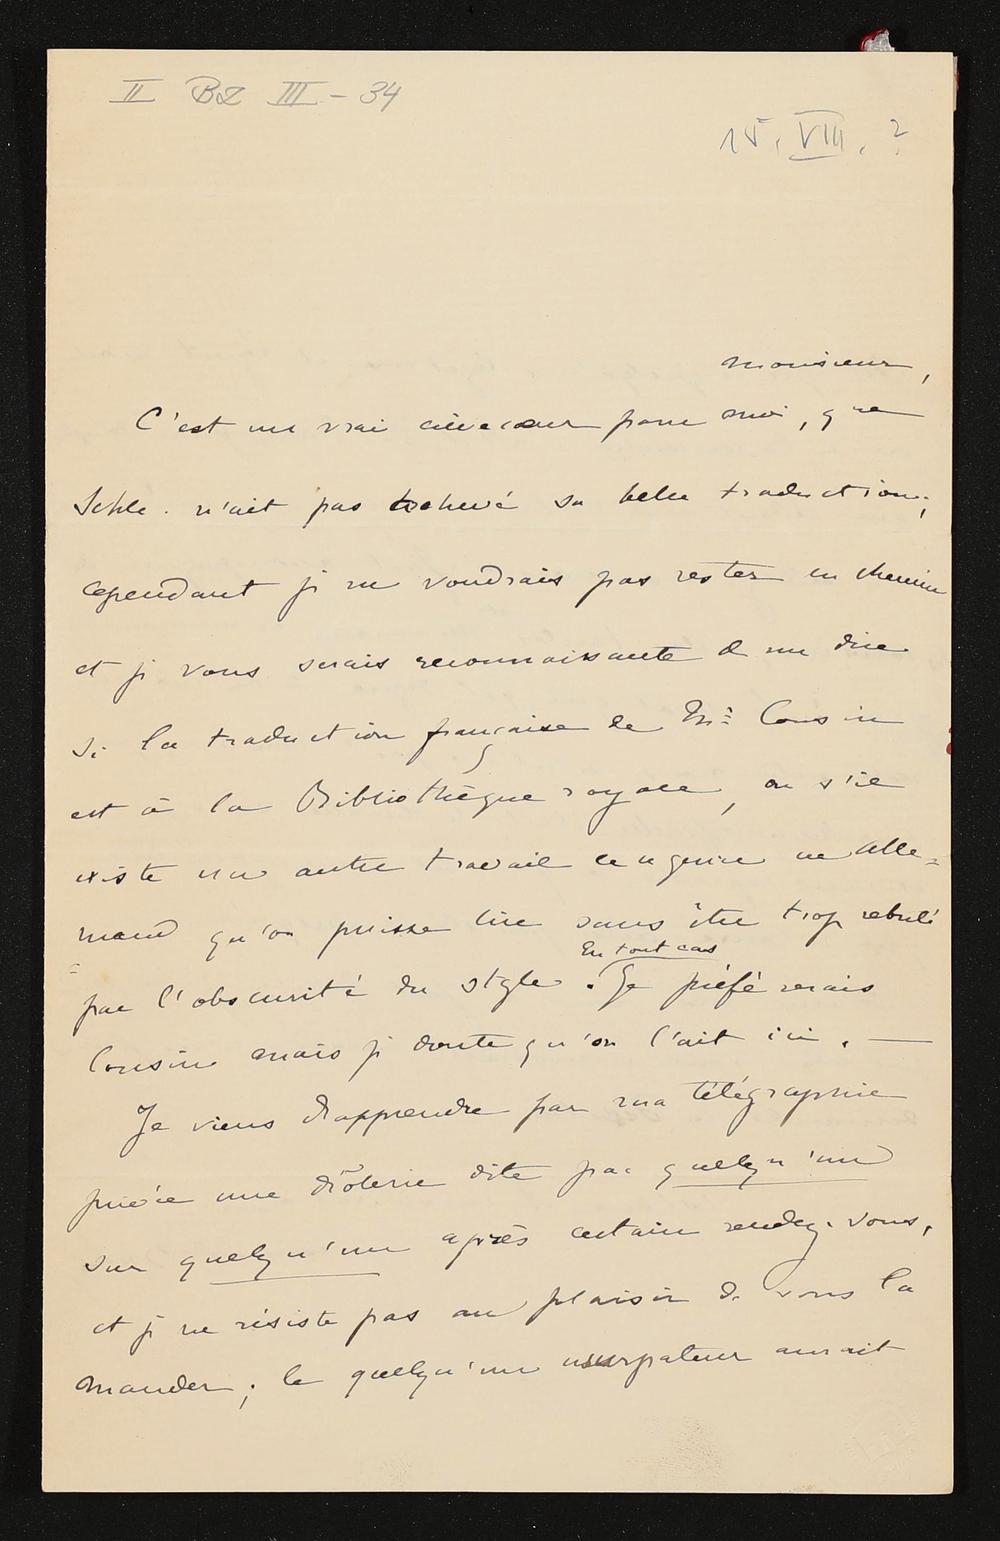 II BZ III - 34
15. VIII. ?
Monsieur,
C'est un vrai crèvecœur pour moi, que
Schle. n'ait pas achevé sa belle traduction;
cependant je ne voudrais pas rester en chemin
et je vous serais reconnaissante de me dire
si la traduction française de Mr. Cousin
est à la Bibliothèque royale, ou s'il
existe un autre travail ce genre en Alle=
=mand qu'on puisse lire sans être trop rebuté
En tout cas
par l'obscurité du style. Je préférerais
Cousin mais je doute qu'on l'ait ici. —
Je viens d'apprendre par ma télégraphie
privée une drôlerie dite par quelqu'un
sur quelqu'un après certain rendez-vous,
et je ne résiste pas au plaisir de vous la
mander; le quelqu'un usurpateur aurait